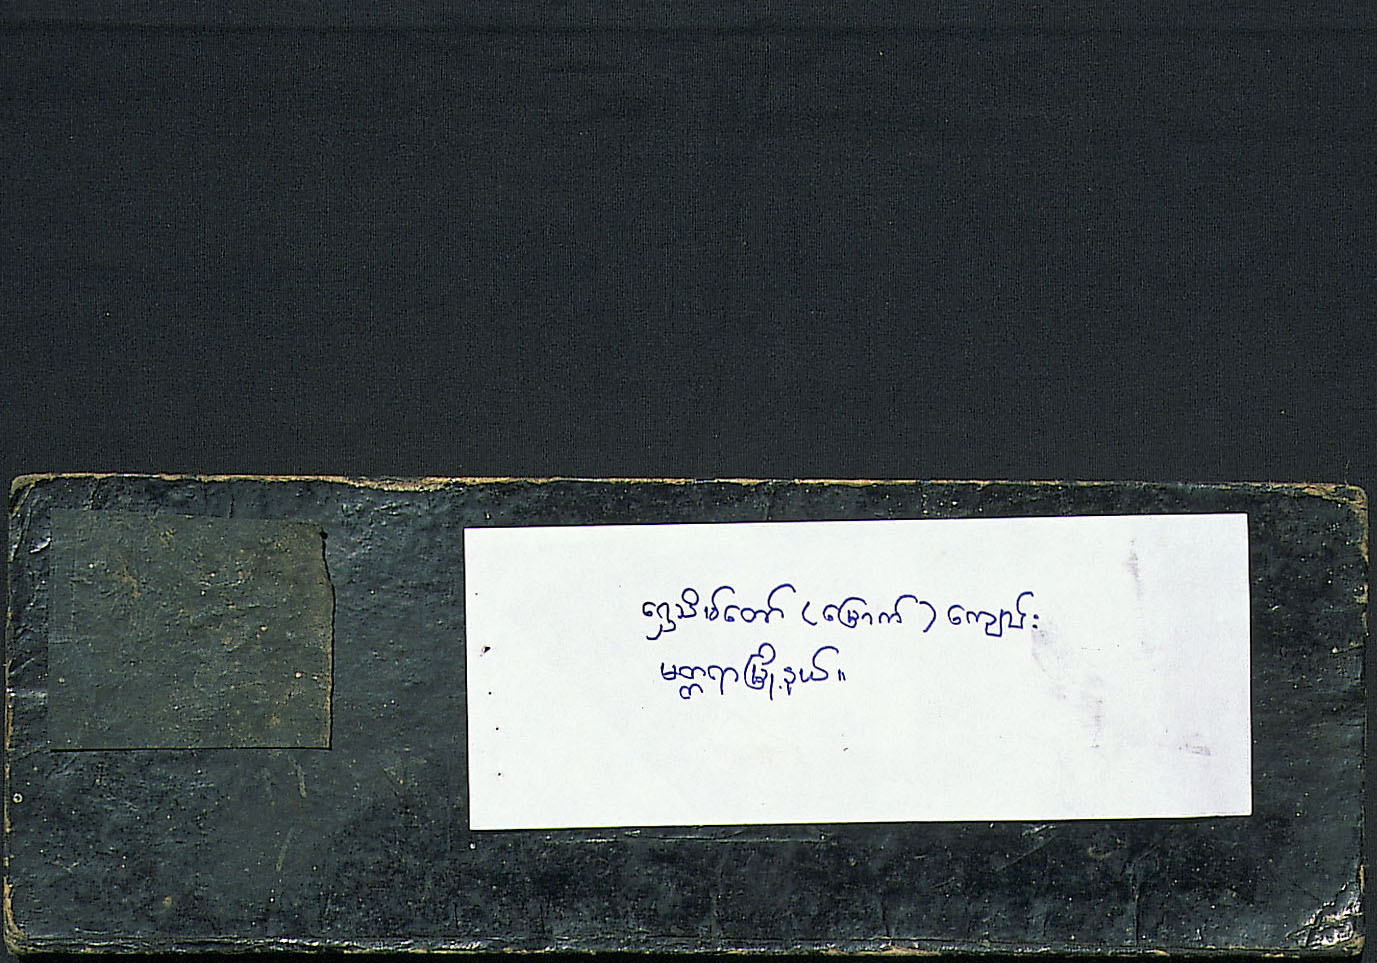 ရွှေသိမ်တော် (မြောက်) ကျေးဝ်း
မတ္တရာမြို့နယ်။